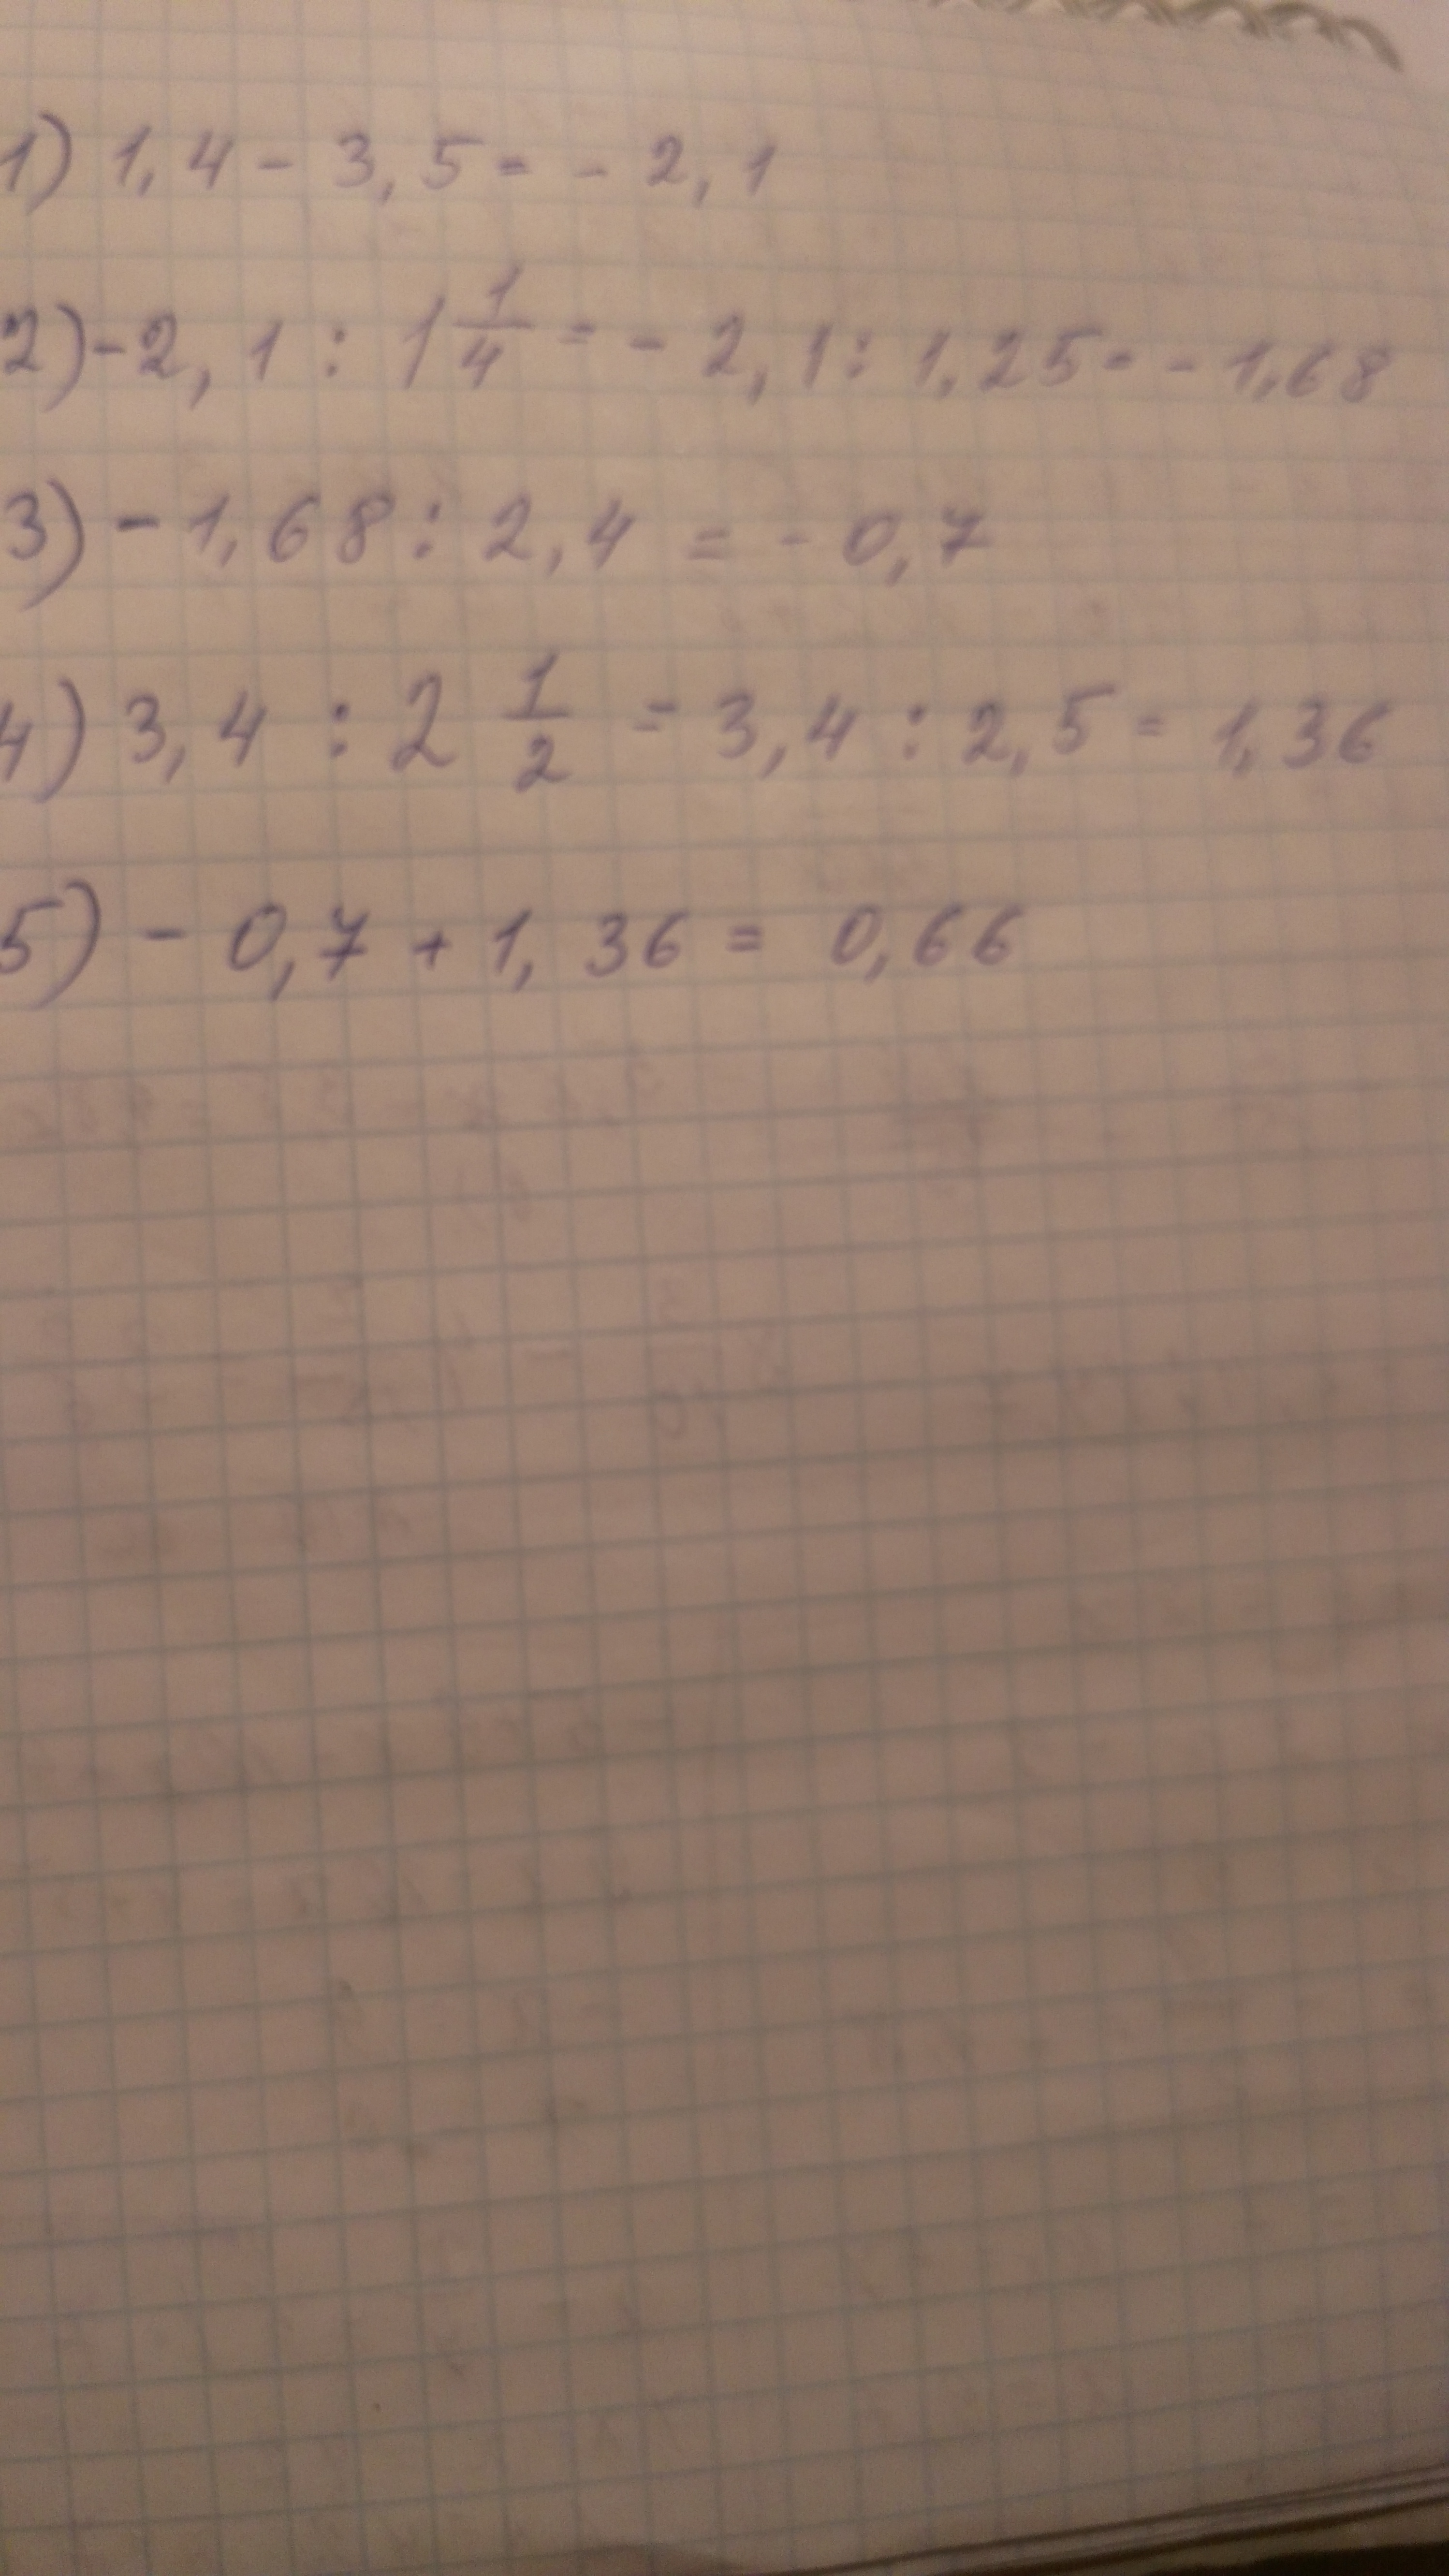 1) 1,4 - 3,5 = - 2,1
2) - 2,1 : 1 1/4 = - 2,1 : 1,25 = - 1,68
3) - 1,68 : 2,4 = - 0,7
4) 3,4 : 2 1/2 = 3,4 : 2,5 = 1,36
5) - 0,7 + 1,36 = 0,66